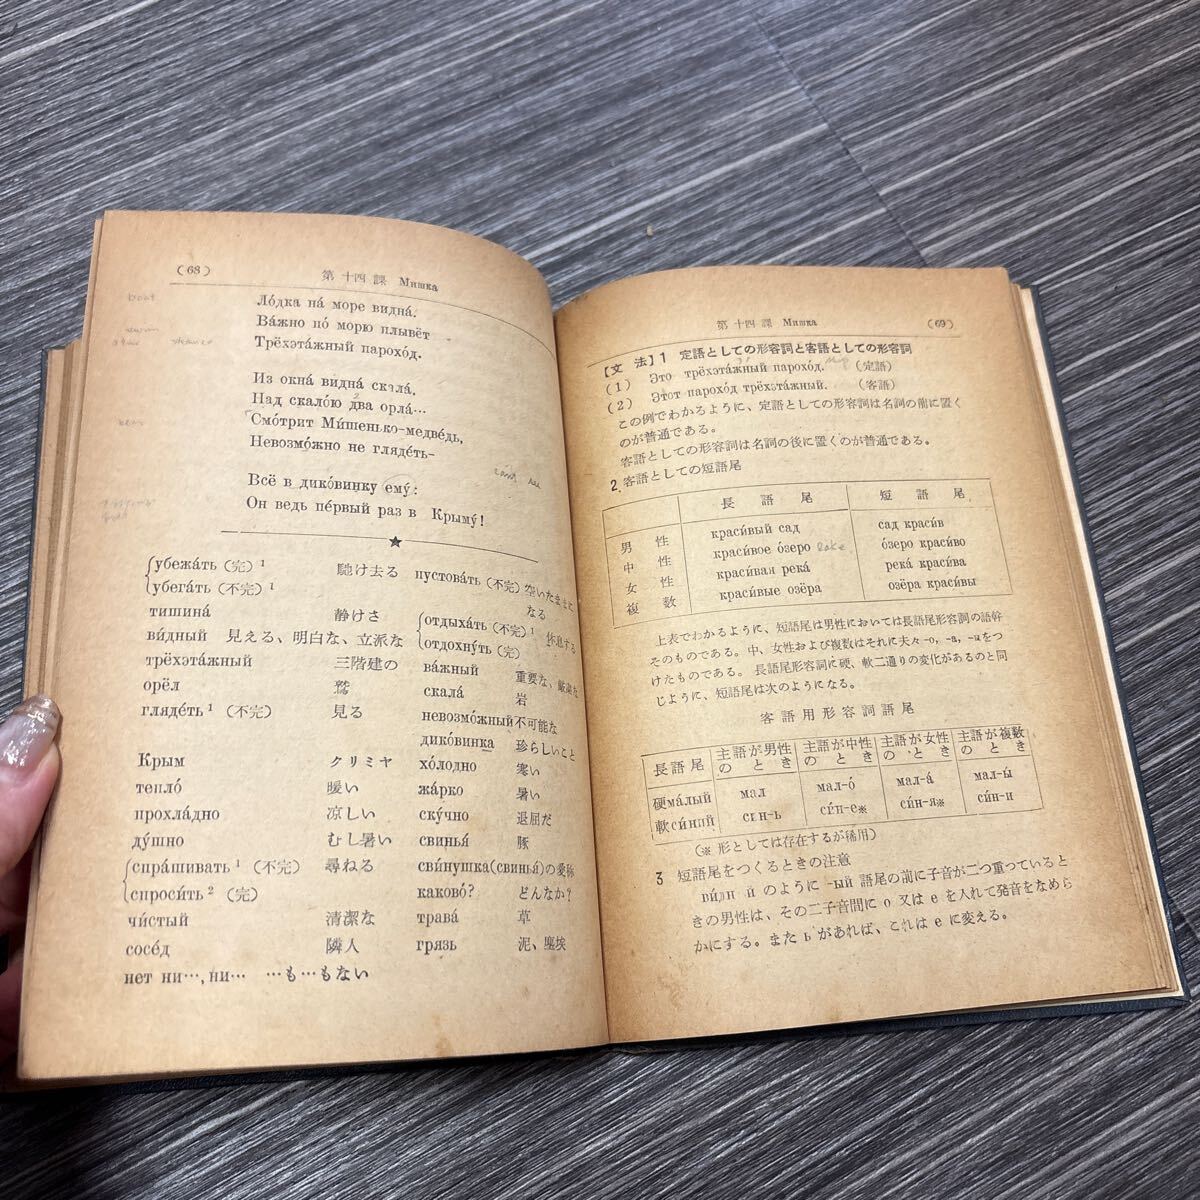 (68)
第十四課 Мишка
boat
Ло́дка на́ море видна́.
Ва́жно по́ морю плывёт
Трёхэта́жный парохо́д.
Из окна́ видна́ скала́,
Над скало́ю два орла́…
Смо́трит Ми́шенько-медве́дь,
Невозмо́жно не гляде́ть-
Всё в дико́винку ему́:
Он ведь пе́рвый раз в Крыму́!
★
убежа́ть (完)¹ 馳け去る
убега́ть (不完)¹
тишина́ 静けさ
ви́дный 見える、明白な、立派な
трёхэта́жный 三階建の
орёл 鷲
гляде́ть¹ (不完) 見る
Крым クリミヤ
тепло́ 暖い
прохла́дно 凉しい
ду́шно むし暑い
спра́шивать¹ (不完) 尋ねる
спроси́ть² (完)
чи́стый 清潔な
сосе́д 隣人
нет ни…, ни… …も…もない
пустова́ть (不完) 空いたままになる
отдыха́ть (不完)¹ 休息する
отдохну́ть (完)
ва́жный 重要な、
скала́ 岩
невозмо́жный 不可能な
дико́винка 珍らしいこと
хо́лодно 寒い
жа́рко 暑い
ску́чно 退屈だ
свинья́ 豚
сви́нушка(свинья́)の愛称
каково́? どんなか？
трава́ 草
грязь 泥、塵埃
第十四課 Мишка
(69)
【文 法】1 定語としての形容詞と客語としての形容詞
(1) Это трёхэта́жный парохо́д. (定語)
(2) Этот парохо́д трёхэта́жный. (客語)
この例でわかるように、定語としての形容詞は名詞の前に置く
のが普通である。
客語としての形容詞は名詞の後に置くのが普通である。
2. 客語としての短語尾
長 語 尾 短 語 尾
男 性 краси́вый сад сад краси́в
中 性 краси́вое о́зеро lake о́зеро краси́во
女 性 краси́вая река́ река́ краси́ва
複 数 краси́вые озёра озёра краси́вы
上表でわかるように、短語尾は男性においては長語尾形容詞の語幹
そのものである。中、女性および複数はそれに夫々 -о, -а, -ы をつ
けたものである。長語尾形容詞に硬、軟二通りの変化があるのと同
じように、短語尾は次のようになる。
客語用形容詞語尾
長語尾 主語が男性のとき 主語が中性のとき 主語が女性のとき 主語が複数のとき
硬ма́лый мал мал-о́ мал-а́ мал-ы́
軟си́ний син-ь си́н-е※ си́н-я※ си́н-и
(※ 形としては存在するが稀用)
3 短語尾をつくるときの注意
ви́дный のように -ый 語尾の前に子音が二つ重っていると
きの男性は、その二子音間に о 又は е を入れて発音をなめら
かにする。また ь があれば、これは е に変える。